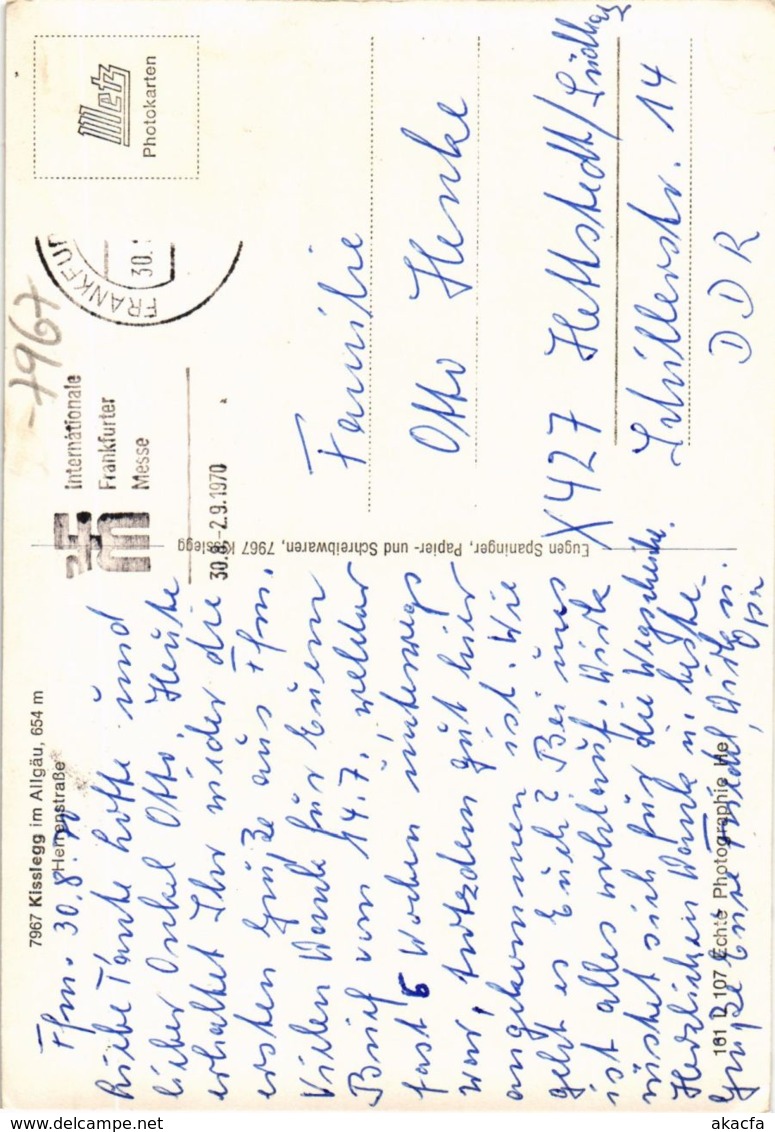 7967 Kisslegg im Allgäu, 654 m
Herrenstraße
Ffm. 30.8.70
Liebe Tante Lotte und
lieber Onkel Otto, Heute
erhaltet Ihr wieder die
ersten Grüße aus Ffm.
Vielen Dank für Euern
Brief vom 14.7., welcher
fast 5 Wochen unterwegs
war, trotzdem gut hier
angekommen ist. Wie
geht es Euch? Bei uns
ist alles wohlauf.
rüstet sich für die
Herzlichen Dank u. beste
Grüße Eure Friedel, u.
Opa
161 D 107 Echte Photographie He
Eugen Spaninger, Papier- und Schreibwaren, 7967 Kisslegg
Metz
Photokarten
FRANKFUR
30.
7967
Internationale
Frankfurter
Messe
30.8.-2.9.1970
Familie
Otto Henke
X427 Hettstedt/Südharz
Schillerstr. 14
DDR
akacfa
akacfa